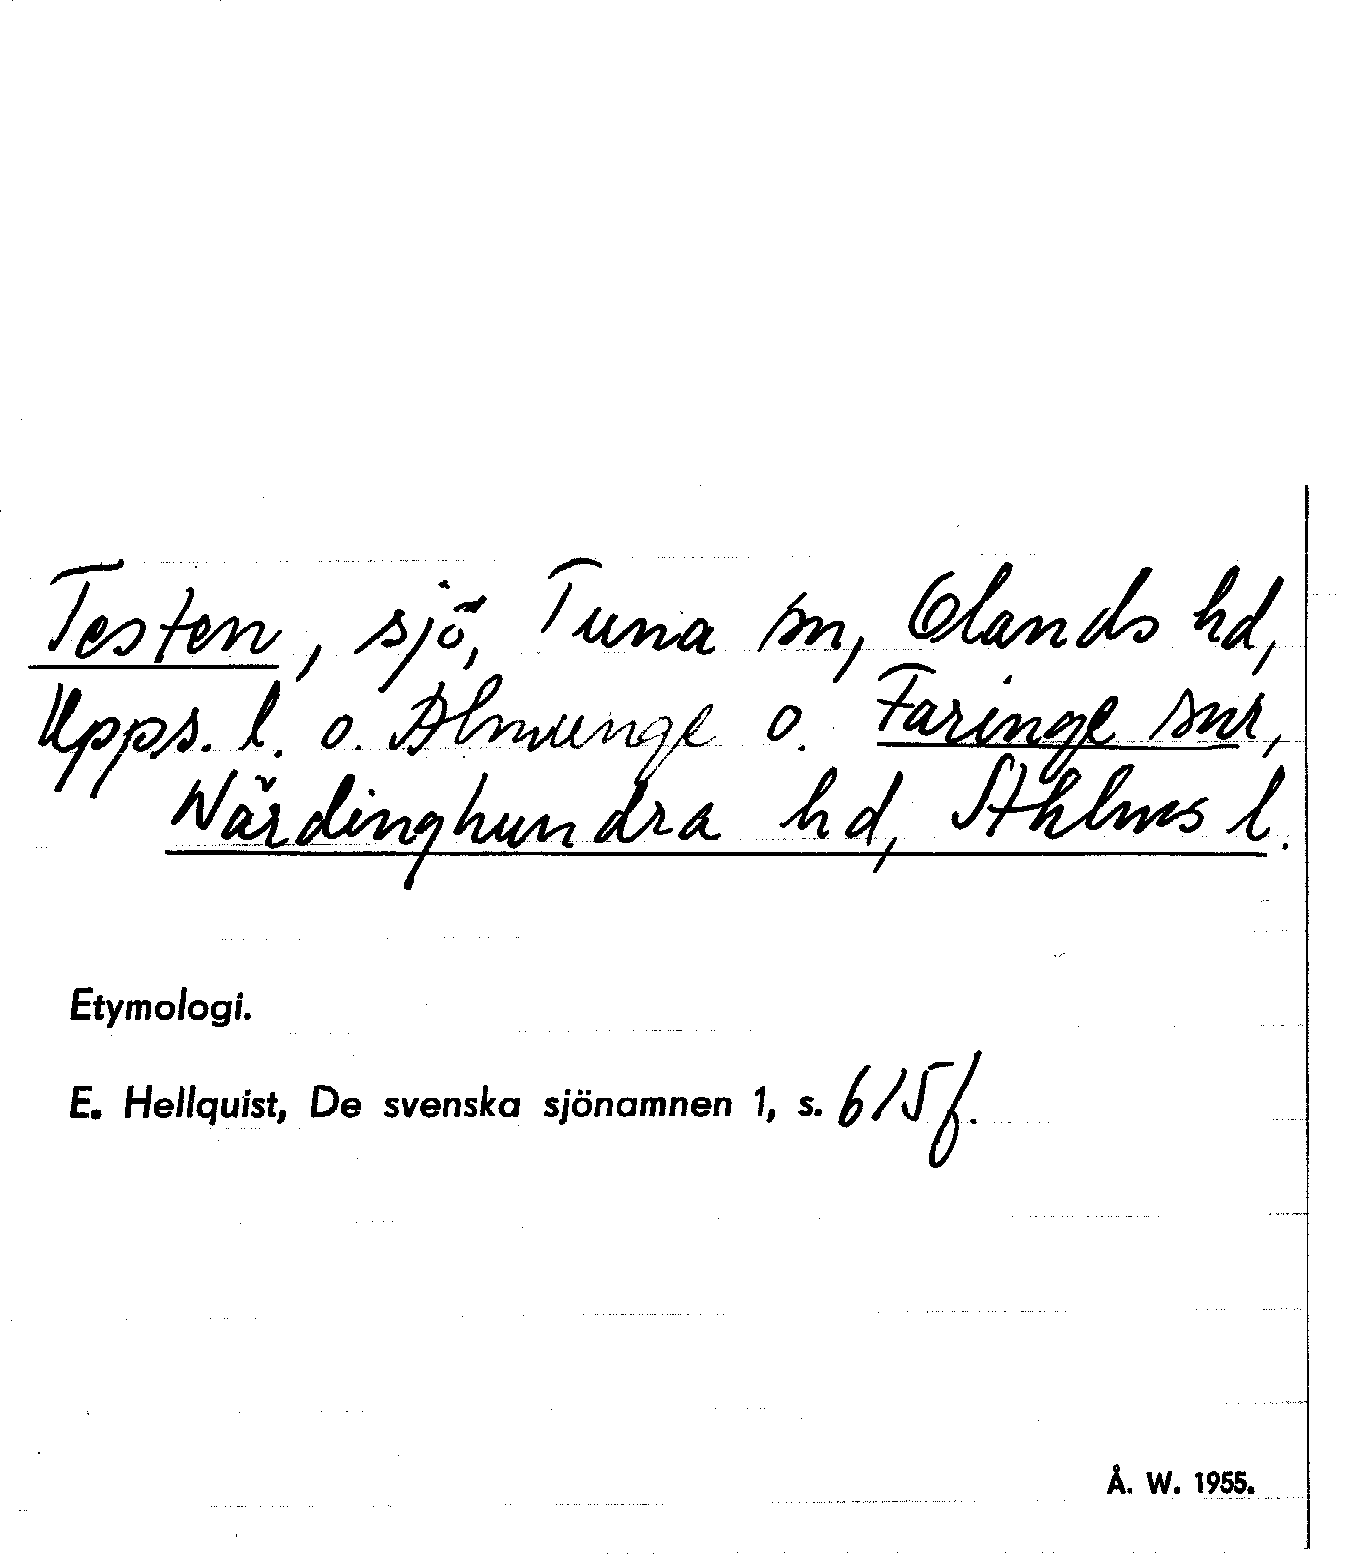 Testen, sjö, Tuna sn, Olands hd,
Upps. l. o. Almunge o. Faringe snr,
Närdinghundra hd, Sthlms l.
Etymologi.
E. Hellquist, De svenska sjönamnen 1, s. 615 f.
Å. W. 1955.